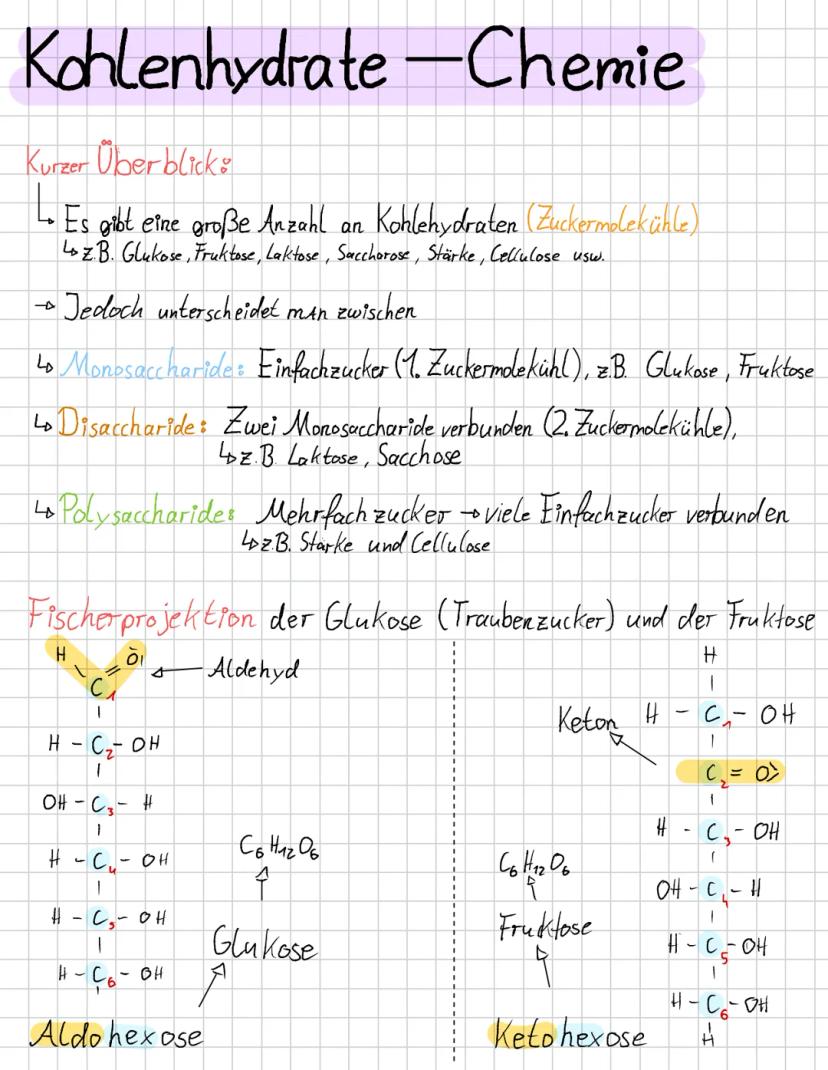 Kohlenhydrate — Chemie
Kurzer Überblick:
↳ Es gibt eine große Anzahl an Kohlehydraten (Zuckermolekühle)
↳ z.B. Glukose, Fruktose, Laktose, Saccharose, Stärke, Cellulose usw.
→ Jedoch unterscheidet man zwischen
↳ Monosaccharide: Einfachzucker (1. Zuckermolekühl), z.B. Glukose, Fruktose
↳ Disaccharide: Zwei Monosaccharide verbunden (2. Zuckermolekühle),
↳ z.B. Laktose, Sacchose
↳ Polysaccharide: Mehrfachzucker → viele Einfachzucker verbunden
↳ z.B. Stärke und Cellulose
Fischerprojektion der Glukose (Traubenzucker) und der Fruktose
H O
C1
← Aldehyd
H - C2 - OH
OH - C3 - H
H - C4 - OH
H - C5 - OH
H - C6 - OH
C6H12O6
Glukose
Aldohexose
H
H - C1 - OH
Keton
C2 = O
H - C3 - OH
OH - C4 - H
H - C5 - OH
H - C6 - OH
H
C6H12O6
Fruktose
Ketohexose